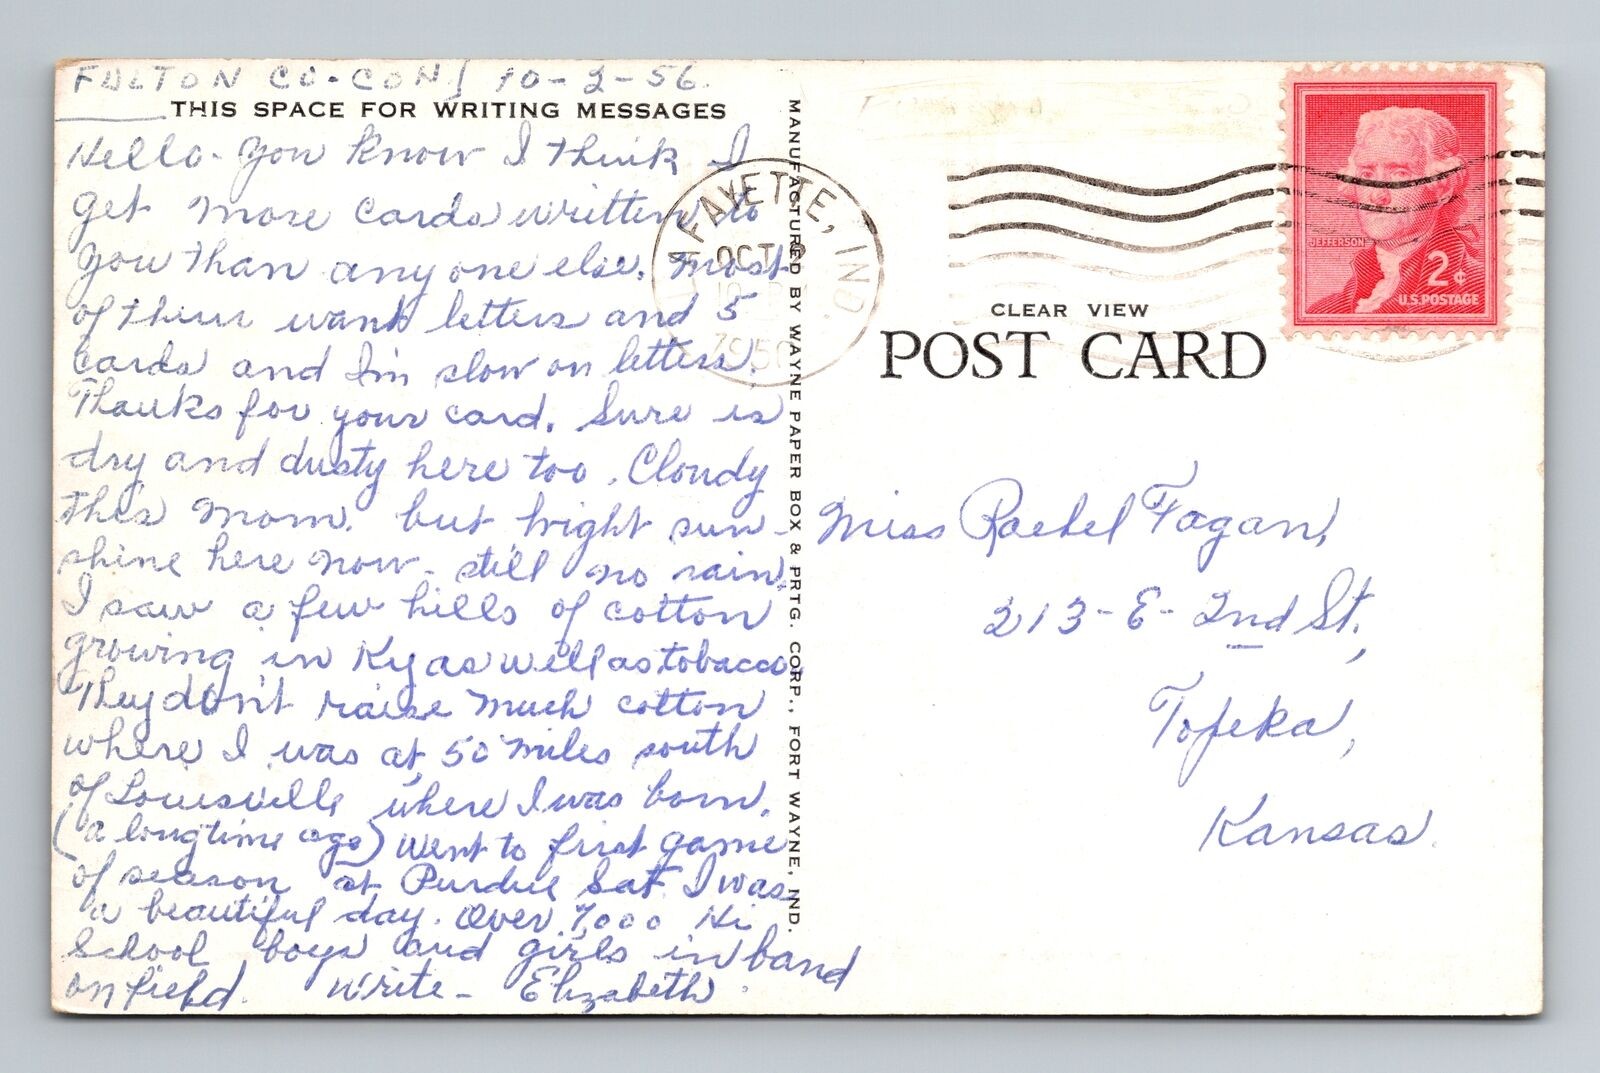 FULTON CO-CON 10-2-56
THIS SPACE FOR WRITING MESSAGES
Hello - You know I think I
get more cards written to
you than any one else. Most
of them want letters and 5
cards and I'm slow on letters.
Thanks for your card. Sure is
dry and dusty here too. Cloudy
this morn. but bright sun-
shine here now - still no rain.
I saw a few hills of cotton
growing in Ky as well as tobacco.
They don't raise much cotton
where I was at, 50 miles south
of Louisville where I was born.
(a long time ago) Went to first game
of season at Purdue Sat. I was
a beautiful day. Over 7,000 Hi
School boys and girls in band
on field. Write - Elizabeth
MANUFACTURED BY WAYNE PAPER BOX & PRTG. CORP., FORT WAYNE, IND.
LAFAYETTE, IND.
OCT 2
1956
JEFFERSON
2¢
U.S. POSTAGE
CLEAR VIEW
POST CARD
Miss Rachel Fagan,
213 - E - 2nd St.,
Topeka,
Kansas.